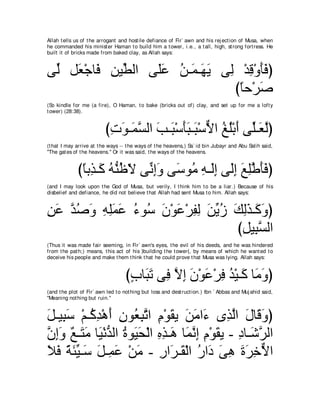 Allah tells us of the arrogant and hostile defiance of Fir`awn and his rejection of Musa, when
he commanded his minister Haman to build him a tower, i.e., a tall, high, strong fortress. He
built it of bricks made from baked clay, as Allah says:
(فَأَوْقِدْ لِى يَـهَـمَـنُ عَلَى الطِّينِ فَاجْعَل لِّى
صَرْحاً)
(So kindle for me (a fire), O Haman, to bake (bricks out of) clay, and set up for me a lofty
tower) (28:38).
(لَّعَـلِّى أَبْلُغُ الاٌّسْبَـبَأَسْبَـبَ السَّمَـوَتِ)
(that I may arrive at the ways -- the ways of the heavens,) Sa`id bin Jubayr and Abu Salih said,
"The gates of the heavens." Or it was said, the ways of the heavens.
(فَأَطَّلِعَ إِلَى إِلَـهِ مُوسَى وَإِنِّى لاّظُنُّهُ كَـذِباً)
(and I may look upon the God of Musa, but verily, I think him to be a liar.) Because of his
disbelief and defiance, he did not believe that Allah had sent Musa to him. Allah says:
(وَكَـذَلِكَ زُيِّنَ لِفِرْعَوْنَ سُوءُ عَمَلِهِ وَصُدَّ عَنِ
السَّبِيلِ)
(Thus it was made fair seeming, in Fir`awn's eyes, the evil of his deeds, and he was hindered
from the path;) means, this act of his (building the tower), by means of which he wanted to
deceive his people and make them think that he could prove that Musa was lying. Allah says:
(وَمَا كَـيْدُ فِرْعَوْنَ إِلاَّ فِى تَبَابٍ)
(and the plot of Fir`awn led to nothing but loss and destruction.) Ibn `Abbas and Mujahid said,
"Meaning nothing but ruin."
(وَقَالَ الَّذِى ءَامَنَ يقَوْمِ اتَّبِعُونِ أَهْدِكُـمْ سَبِيـلَ
الرَّشَـادِ - يقَوْمِ إِنَّمَا هَـذِهِ الْحَيَوةُ الدُّنْيَا مَتَـعٌ وَإِنَّ
الاٌّخِرَةَ هِىَ دَارُ الْقَـرَارِ - مَنْ عَمِـلَ سَـيِّئَةً فَلاَ